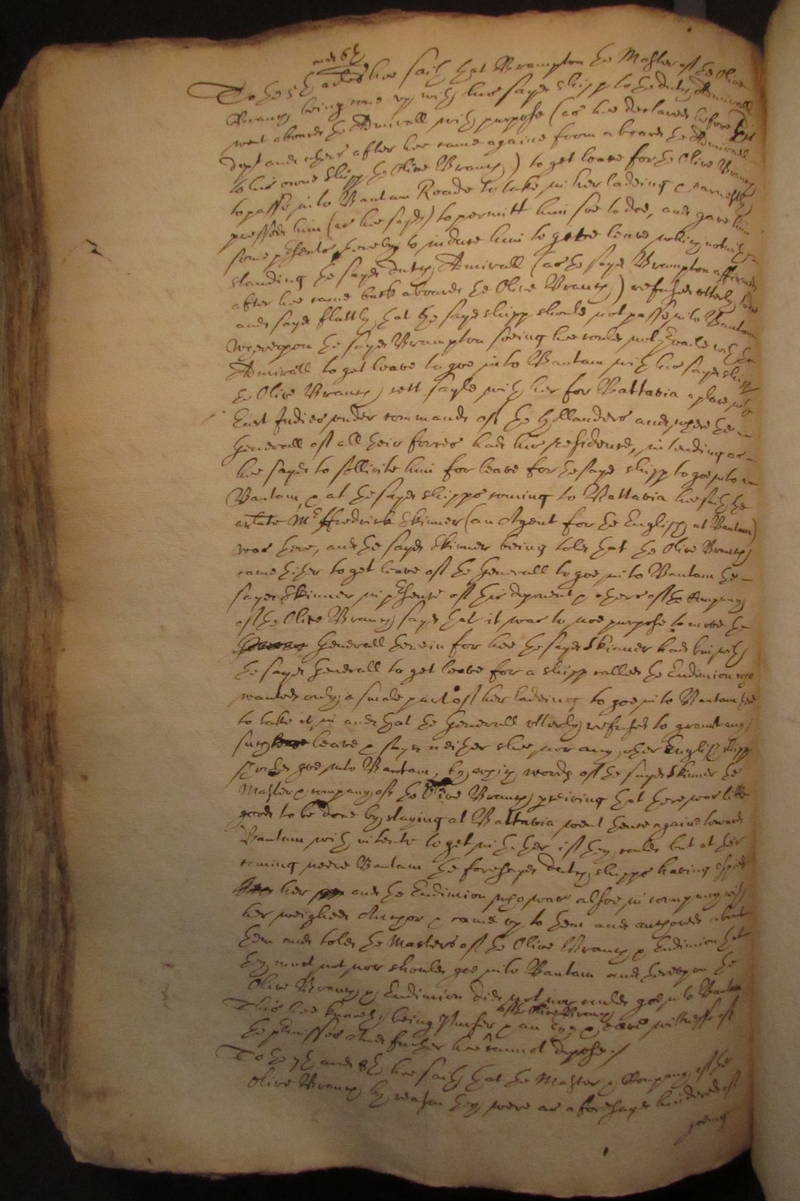 and 6th
To the 5th arles hee saith that Brampton the Master of the Olive
Branch being come up with his sayd shipp to the dutch Admirall
went aboard the Admirall with purpose (as hee declared before this
dept and others after hee came againe from a board the Admirall
to his owne shipp the Olive Branch) to get leave for the Olive Branch
to passe into Bantam Roade to take in her ladeing & earnestly
pressed him (as hee sayd) to permitt him soe to doe, and gave him
some presents thereby to induce him to give leave notwith=
standing the sayd dutch Admirall (as the sayd Brampton affirmed
after hee came back aboard the Olive Branch) refused utterly
and sayd flattly that the sayd shipp should not passe into Bantam
Whereupon the sayd Brampton seeing hee could not prevaile with the
Admirall to get leave to goe into Bantam with his sayd shipp
the Olive Branch sett sayle with her for Battavia a place in the
East Indies under command of the Hollanders and where the
Generall of all their forces had his residence, intending as
hee sayd to sollicite him for leave for the sayd shipp to goe into
Bantam, & at the sayd shipps coming to Battavia hee saith the
arlate Mr ffredrick Skinner (an Agent for the English at Bantam)
was there, and the sayd Skinner being told that the Olive Branch
came thither to get leave of the Generall to goe into Bantam the
sayd Skinner in presence of this deponent & others of the Company
of the Olive Branch sayd that it was to noe purpose to move the
Generall therein for hee the sayd Skinner had bin with
the sayd Generall to get leave for a shipp called the Endimion who
wanted only a smale part of her ladeing to goe into Bantam
to take it in and that the Generall utterly refused to grant any
such leave & sayd neither shee nor any other English shipp
should goe into Bantam, by which words of the sayd Skinner the
Master & company of the Olive Branch perceiving that there was little
good to be done by staying at Battavia went thence againe toward
Bantam with intent to get in thether if they could but at their
coming neere Bantam the foresayd dutch shipps having espied
her and the Endimion who was alsoe in company with
her weighed Anchor & came up to them and anchored about
them and told the Masters of the Olive Branch & Endimion that
they must not nor should goe into Bantam and thereupon the
Olive Branch & Endimion did not nor could goe into Bantam
This hee knoweth being Purser of the Olive Branch & an eye & eare witnesse of
the premisses And further hee cannot depose /
To the 7th and 8th hee saith that the Master & Company of the
Olive Branch by reason they were as aforesayd hindered of
going